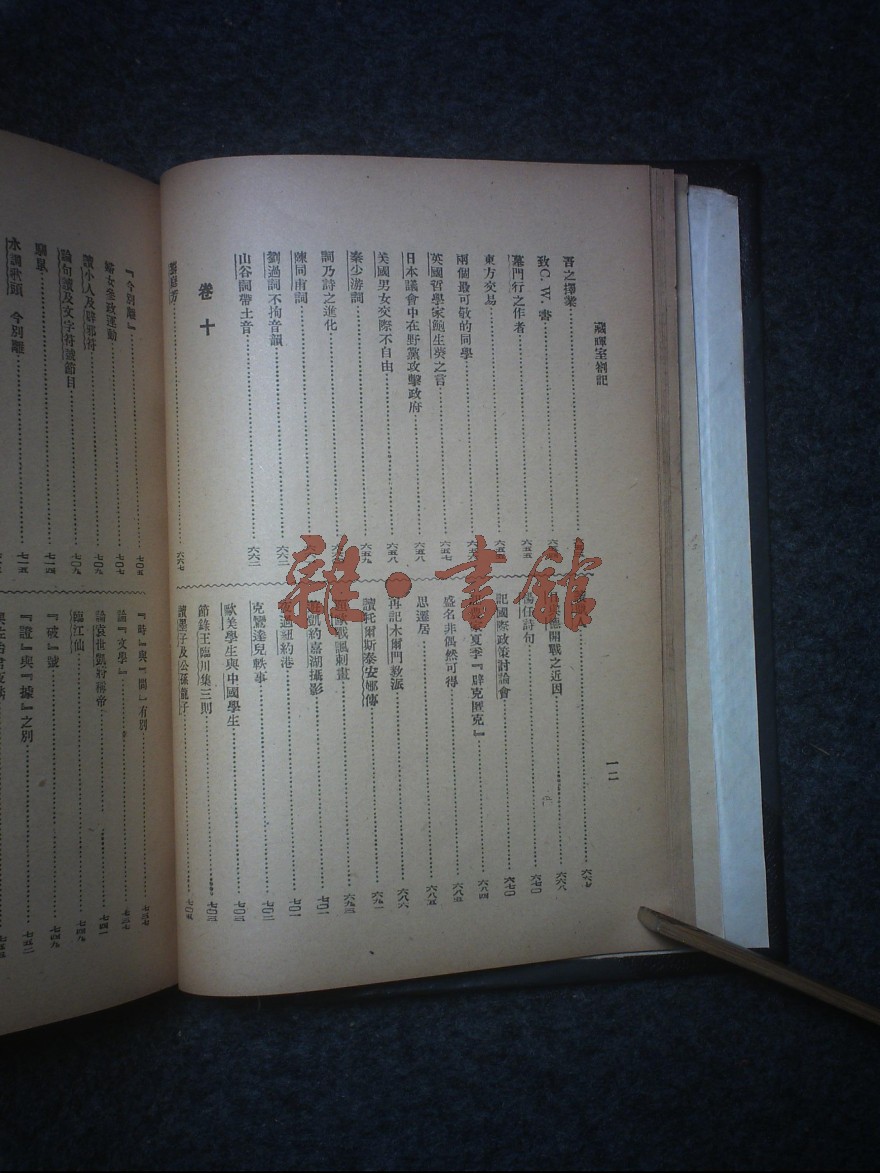 藏暉室劄記
一二
吾之擇業
致C. W. 書
墓門行之作者
東方交易
兩個最可敬的同學
英國哲學家鮑生葵之言 六五七
日本議會中在野黨攻擊政府 六五八
美國男女交際不自由 六五八
秦少游詞 六五九
詞乃詩之進化
陳同甫詞
劉過詞不拘音韻 六六二
山谷詞帶土音 六六二
卷十
六六七
六六七
開戰之近因 六六八
任詩句 六七〇
記國際政策討論會 六七〇
夏季『辟克匿克』 六八四
盛名非偶然可得 六八五
思遷居 六八五
再記木爾門教派 六八六
讀托爾斯泰安娜傳 六九一
歐戰諷刺畫 六九三
凱約嘉湖攝影 七〇一
夜過紐約港 七〇一
克鸞達兒軼事 七〇二
歐美學生與中國學生 七〇三
節錄王臨川集三則 七〇三
讀墨子及公孫龍子 七〇五
『今別離』 七〇五
婦女參政運動 七〇七
讀小人及辟邪符 七〇九
論句讀及文字符號節目 七〇九
馴鼠 七一四
水調歌頭 今別離 七一五
『時』與『間』有別 七三七
論『文學』 七三七
論袁世凱將稱帝 七四一
臨江仙 七四九
『破』號 七四九
『證』與『據』之別 七五二
雜·書館